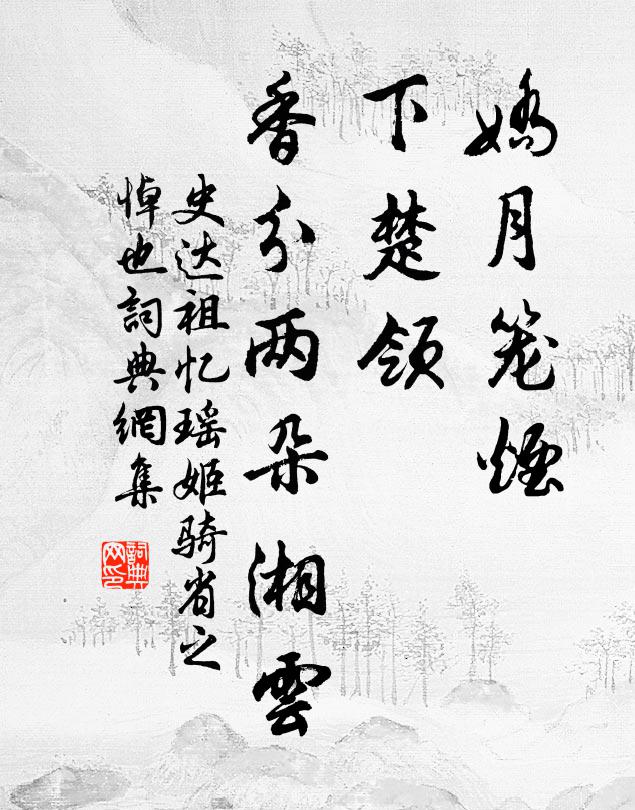 娇月笼煙
下楚领
香分两朵湘雲
史达祖忆瑶姬骑省之
悼也詞典網集
詞典
网印